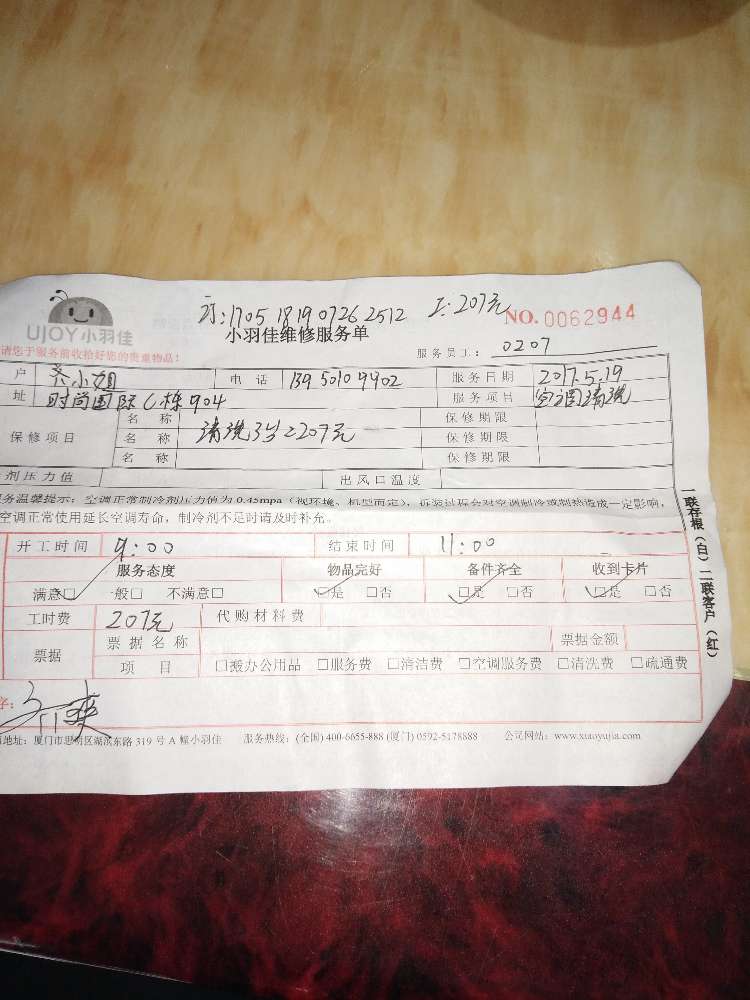 订:1705 1819 0726 2512 工:207元
NO. 0062944
UJOY小羽佳
小羽佳维修服务单
请您于服务前收拾好您的贵重物品!
服务员工: 0207
户 齐小姐 电话 13950109902 服务日期 2017.5.19
址 时尚国际C栋904 服务项目 空调清洗
保修项目
名称 清洗3台=207元 保修期限
名称 保修期限
名称 保修期限
剂压力值 出风口温度
务温馨提示:空调正常制冷剂压力值为0.45mpa(视环境、机型而定),拆装过程会对空调制冷或制热造成一定影响,
空调正常使用延长空调寿命,制冷剂不足时请及时补充。
开工时间 9:00 结束时间 11:00
服务态度 物品完好 备件齐全 收到卡片
满意□ 一般□ 不满意□ □是 □否 □是 □否 □是 □否
工时费 207元 代购材料费
票据 票据名称 票据金额
项目 □搬办公用品 □服务费 □清洁费 □空调服务费 □清洗费 □疏通费
字:
地址:厦门市思明区湖滨东路319号A幢小羽佳 服务热线:(全国)400-6655-888 (厦门)0592-5178888 公司网站:www.xiaoyujia.com
一联存根(白)二联客户(红)